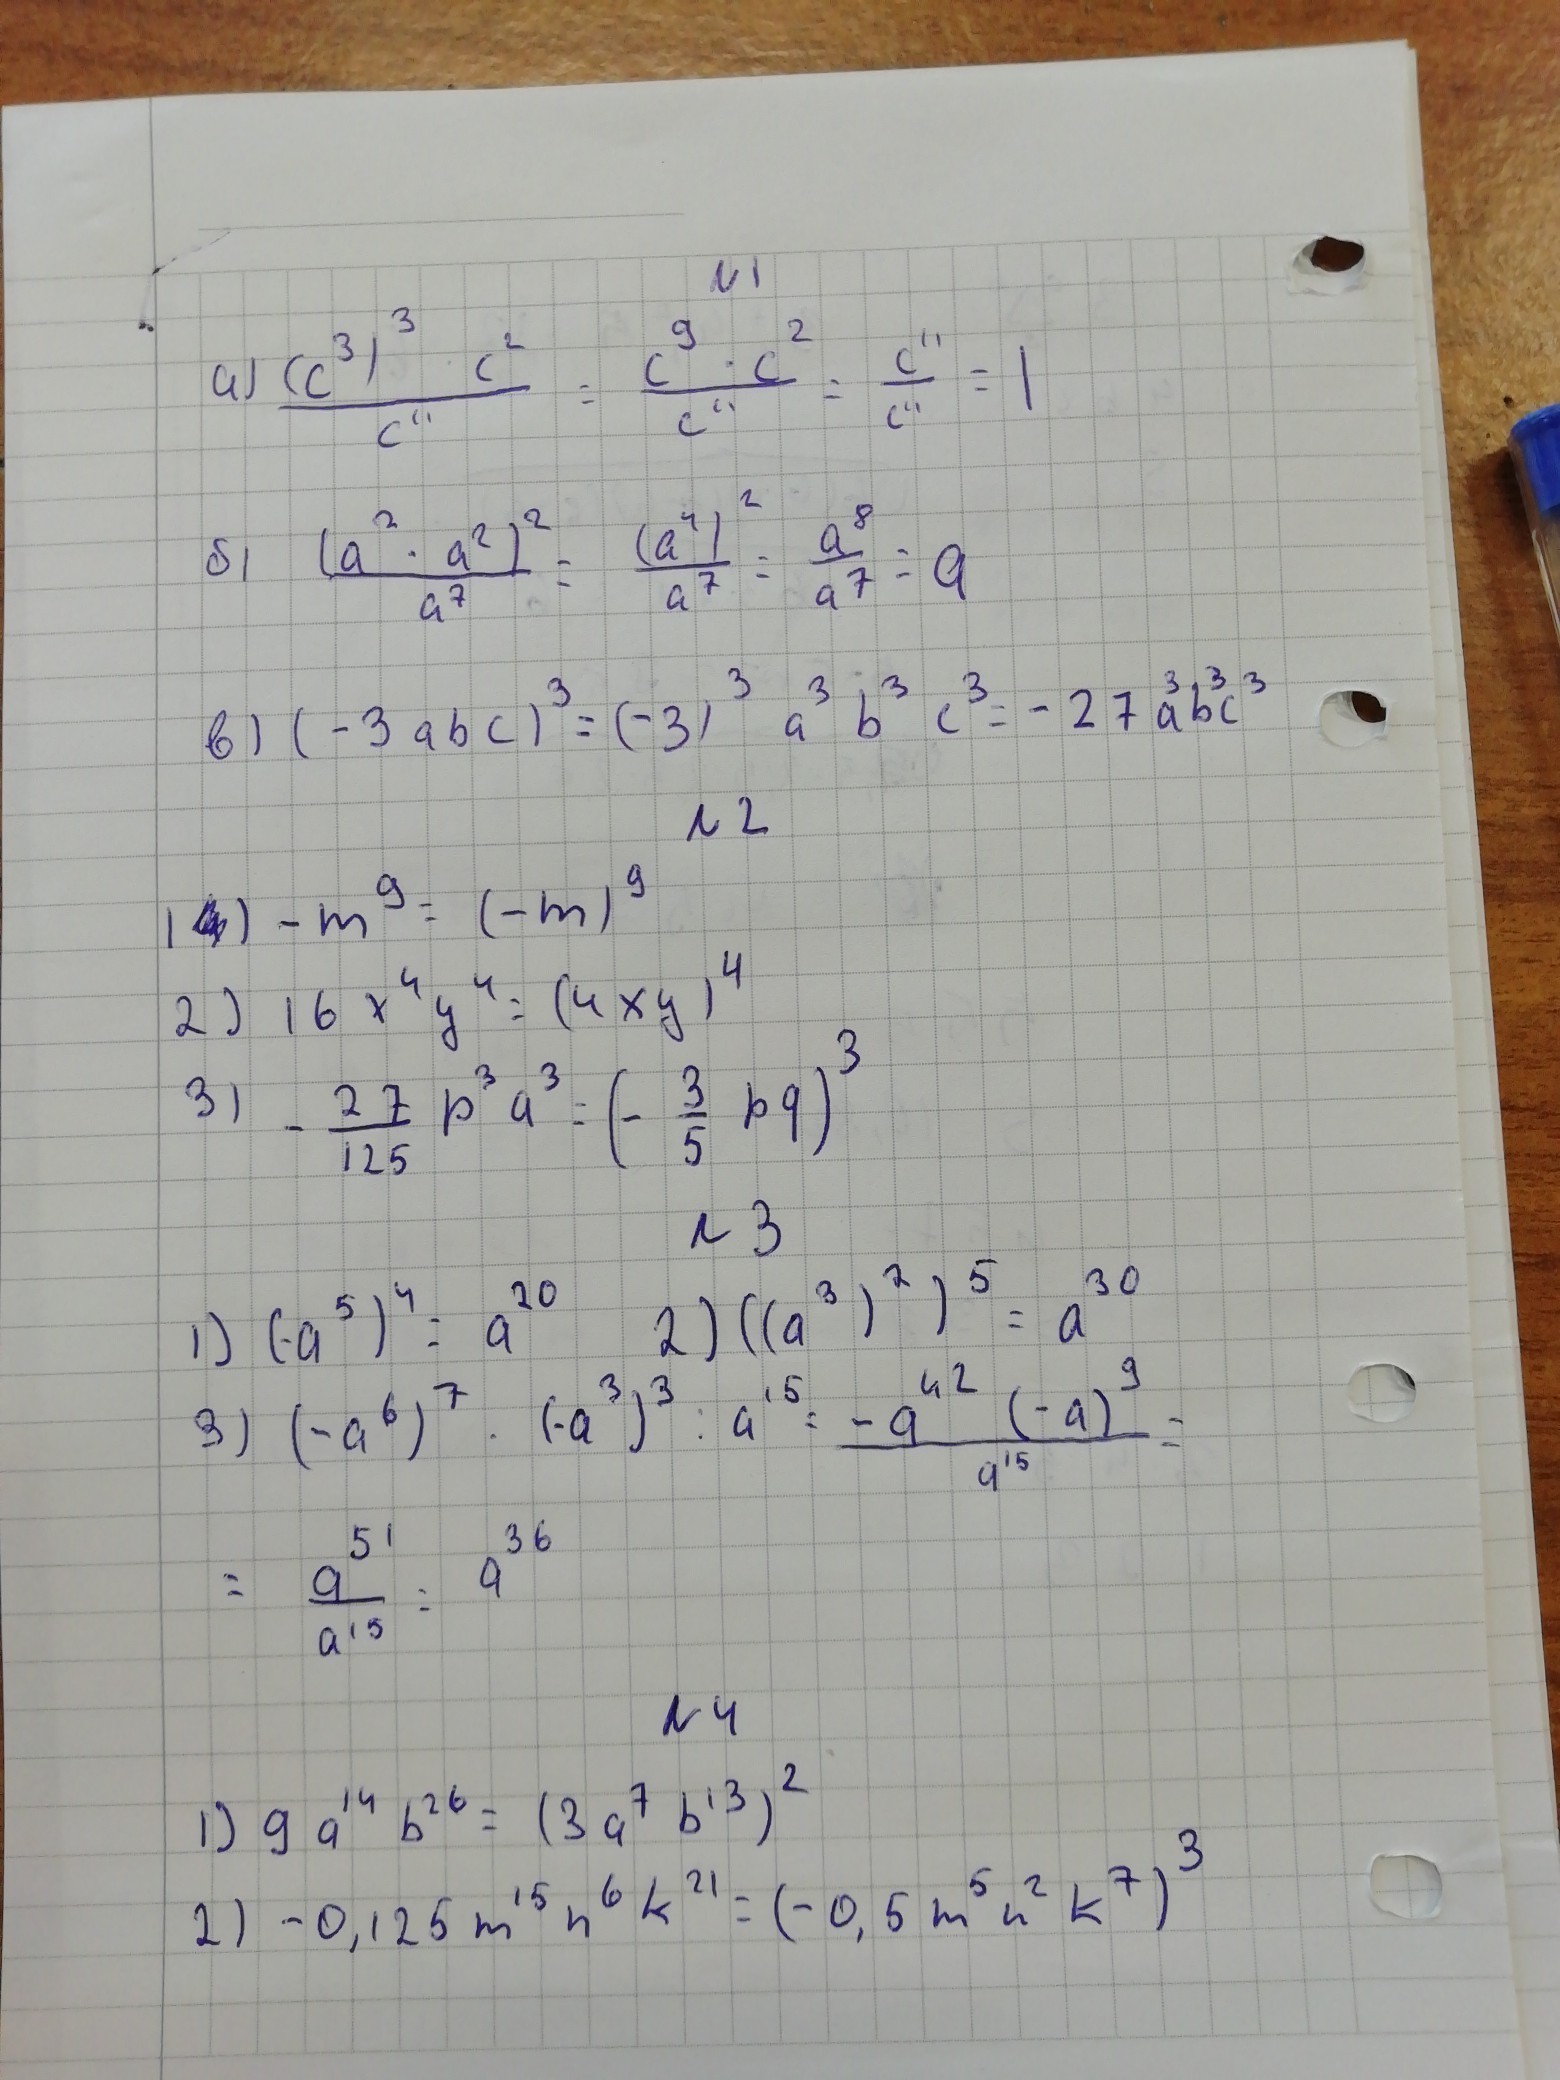 N1
а) ((c³)³ · c²)/c¹¹ = (c⁹ · c²)/c¹¹ = c¹¹/c¹¹ = 1
б) (a² · a²)²/a⁷ = (a⁴)²/a⁷ = a⁸/a⁷ = a
в) (-3abc)³ = (-3)³ a³ b³ c³ = -27a³b³c³
N2
1) -m⁹ = (-m)⁹
2) 16x⁴y⁴ = (4xy)⁴
3) -27/125 p³a³ = (-3/5 pq)³
N3
1) (-a⁵)⁴ = a²⁰ 2) ((a³)²)⁵ = a³⁰
3) (-a⁶)⁷ · (-a³)³ : a¹⁵ = (-a⁴² (-a)⁹)/a¹⁵ =
= a⁵¹/a¹⁵ = a³⁶
N4
1) 9a¹⁴b²⁶ = (3a⁷b¹³)²
2) -0,125m¹⁵n⁶k²¹ = (-0,5m⁵n²k⁷)³